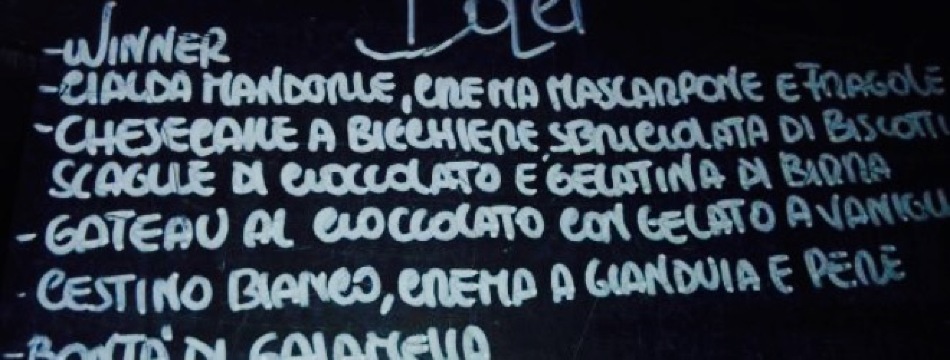 Dolci
-WINNER
-CIALDA MANDORLE, CREMA MASCARPONE E FRAGOLE
-CHESECAKE A BICCHIERE, SBRICIOLATA DI BISCOTTI
SCAGLIE DI CIOCCOLATO E GELATINA DI BIRRA
- GATEAU AL CIOCCOLATO CON GELATO A VANIGLI
- CESTINO BIANCO, CREMA A GIANDUIA E PERE
-BONTA' DI CALAMELLA